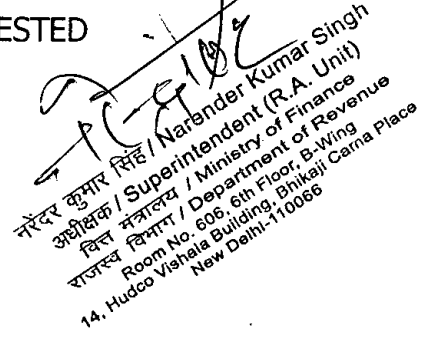 ESTED
नरेंदर कुमार सिंह / Narender Kumar Singh
अधीक्षक / Superintendent (R.A. Unit)
वित्त मंत्रालय / Ministry of Finance
राजस्व विभाग / Department of Revenue
Room No. 606, 6th Floor, B-Wing
14, Hudco Vishala Building, Bhikaji Cama Place
New Delhi-110066